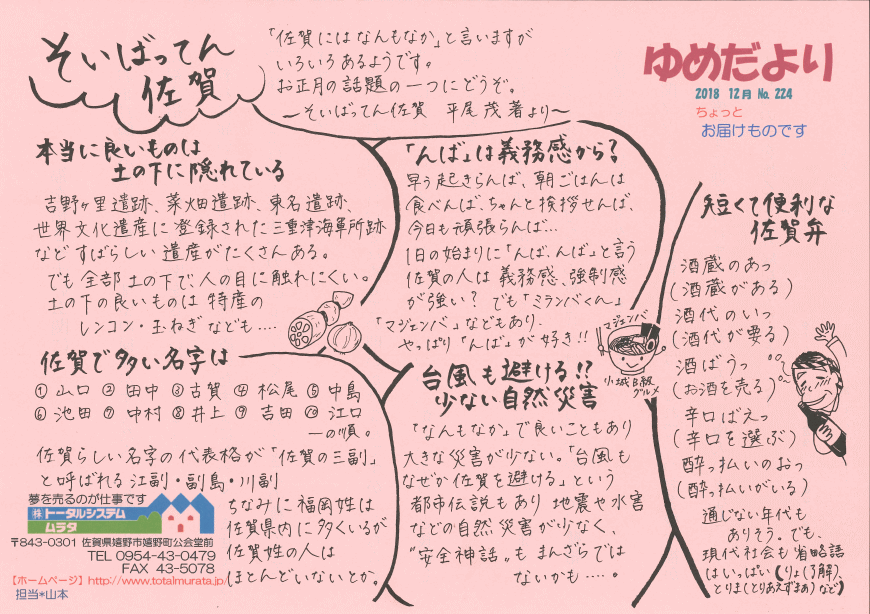 そいばってん
佐賀
「佐賀にはなんもなか」と言いますが
いろいろあるようです。
お正月の話題の一つにどうぞ。
～そいばってん佐賀　平尾 茂 著より～
ゆめだより
2018 12月 No. 224
ちょっと
お届けものです
本当に良いものは
土の下に隠れている
吉野ヶ里遺跡、菜畑遺跡、東名遺跡、
世界文化遺産に登録された三重津海軍所跡
などすばらしい遺産がたくさんある。
でも全部土の下で、人の目に触れにくい。
土の下の良いものは特産の
レンコン・玉ねぎなども‥‥
「んば」は義務感から?
早う起きらんば、朝ごはんは
食べんば、ちゃんと挨拶せんば、
今日も頑張らんば…
1日の始まりに「んば、んば」と言う
佐賀の人は義務感、強制感
が強い? でも「ミランバくん」
「マジェンバ」などもあり、
やっぱり「んば」が好き!!
マジェンバ
小城B級
グルメ
佐賀で多い名字は
① 山口 ② 田中 ③ 古賀 ④ 松尾 ⑤ 中島
⑥ 池田 ⑦ 中村 ⑧ 井上 ⑨ 吉田 ⑩ 江口
ーの順。
佐賀らしい名字の代表格が「佐賀の三副」
と呼ばれる江副・副島・川副
ちなみに福岡姓は
佐賀県内に多くいるが
佐賀姓の人は
ほとんどいないとか。
台風も避ける!?
少ない自然災害
「なんもなか」で良いこともあり
大きな災害が少ない。「台風も
なぜか佐賀を避ける」という
都市伝説もあり 地震や水害
などの自然災害が少なく、
"安全神話"も まんざらでは
ないかも‥‥。
短くて便利な
佐賀弁
酒蔵のあっ
(酒蔵がある)
酒代のいっ
(酒代が要る)
酒ばうっ
(お酒を売る)
辛口ばえっ
(辛口を選ぶ)
酔っ払いのおっ
(酔っ払いがいる)
通じない年代も
ありそう。でも、
現代社会も省略語
はいっぱい(りょ(了解)、
とりま(とりあえずまあ)など)
夢を売るのが仕事です
㈱ トータルシステム
ムラタ
〒843-0301 佐賀県嬉野市嬉野町公会堂前
TEL 0954-43-0479
FAX 43-5078
【ホームページ】http://www.totalmurata.jp/
担当*山本